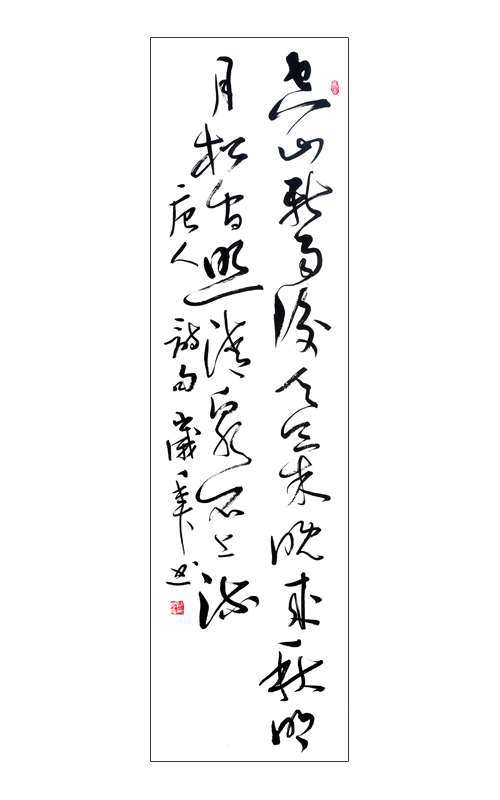 空山新雨後天氣晚來秋明
月松間照清泉石上流
唐人詩句歲